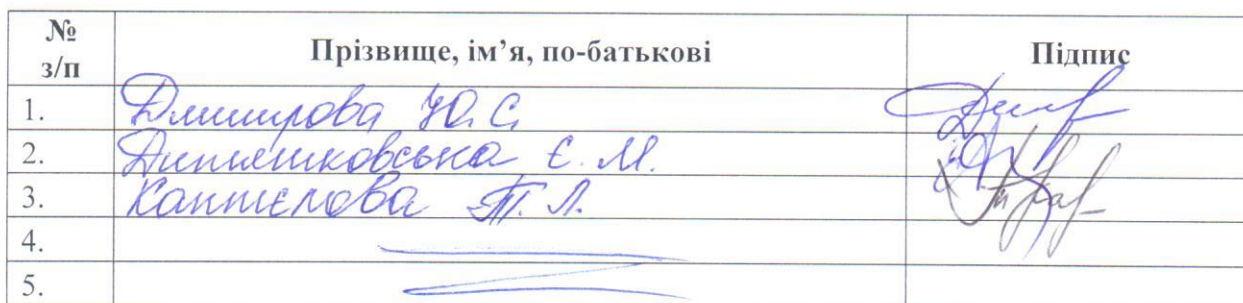 № з/п Прізвище, ім’я, по-батькові Підпис
1. Дмитрова Ю.С.
2. Є. М.
3. Каптєлова Т. Л.
4.
5.